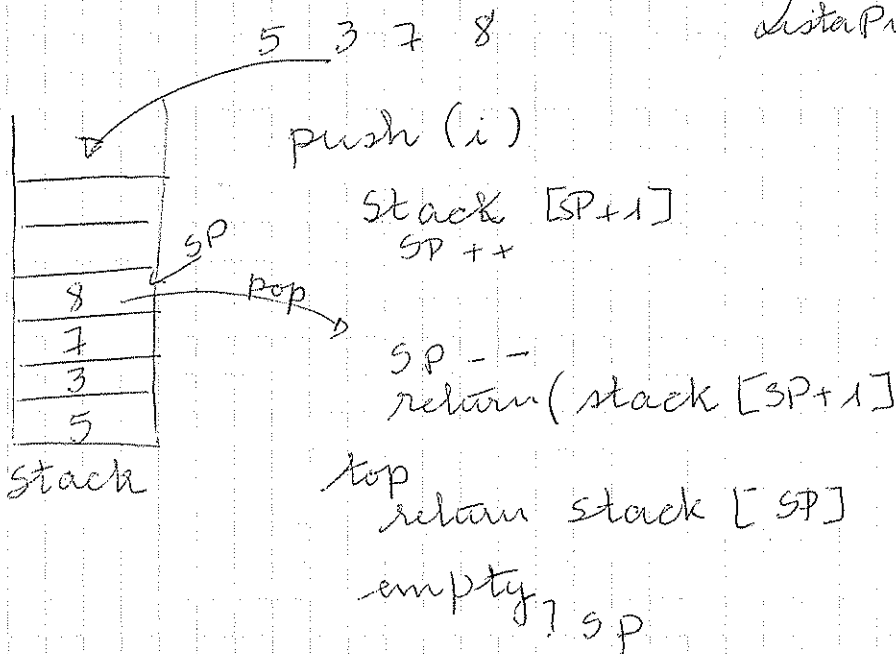 5 3 7 8
push (i)
Stack [SP+1]
SP ++
SP
8
pop
7
3
5
stack
SP --
return (stack [SP+1]
top
return stack [SP]
empty
? SP